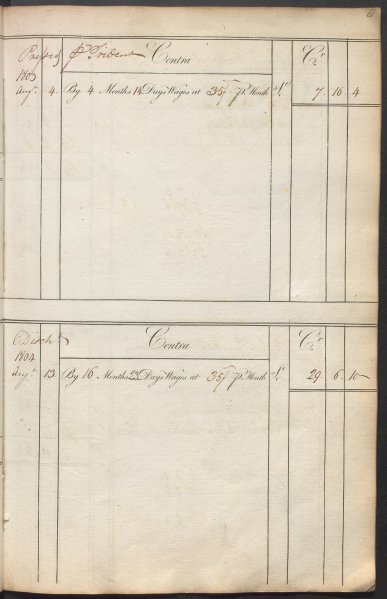 Pressed pr Trident Contra Cr
1803
Augt. 4. By 4 Months 14 Days Wages at 35/ pr. Month £ 7. 16. 4
Disch'd Contra Cr
1804
Augt. 13. By 16 Months 23 Days Wages at 35/ pr. Month £ 29. 6. 10